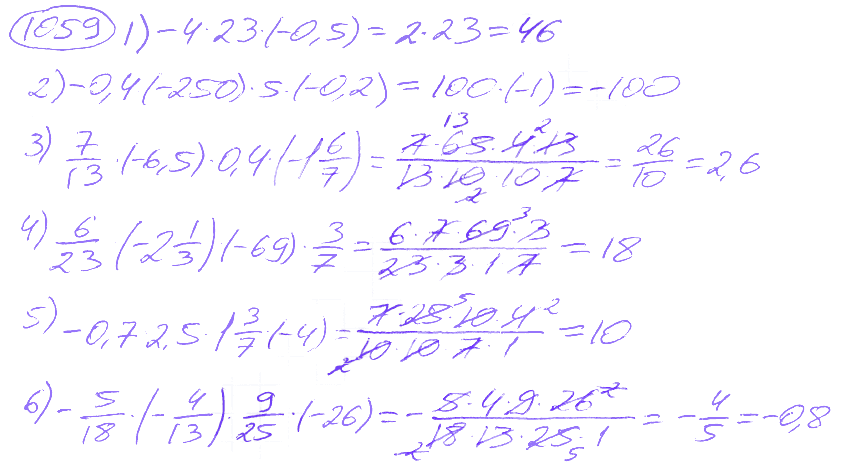 1059 1) -4·23·(-0,5)=2·23=46
2) -0,4(-250)·5·(-0,2)=100·(-1)=-100
3) 7/13·(-6,5)·0,4·(-1 6/7)=(7·65·4·13)/(13·10·10·7)=26/10=2,6
4) 6/23(-2 1/3)(-69)·3/7=(6·7·69·3)/(23·3·1·7)=18
5) -0,7·2,5·1 3/7(-4)=(7·25·10·4)/(10·10·7·1)=10
6) -5/18·(-4/13)·9/25·(-26)=-(5·4·9·26)/(18·13·25·1)=-4/5=-0,8